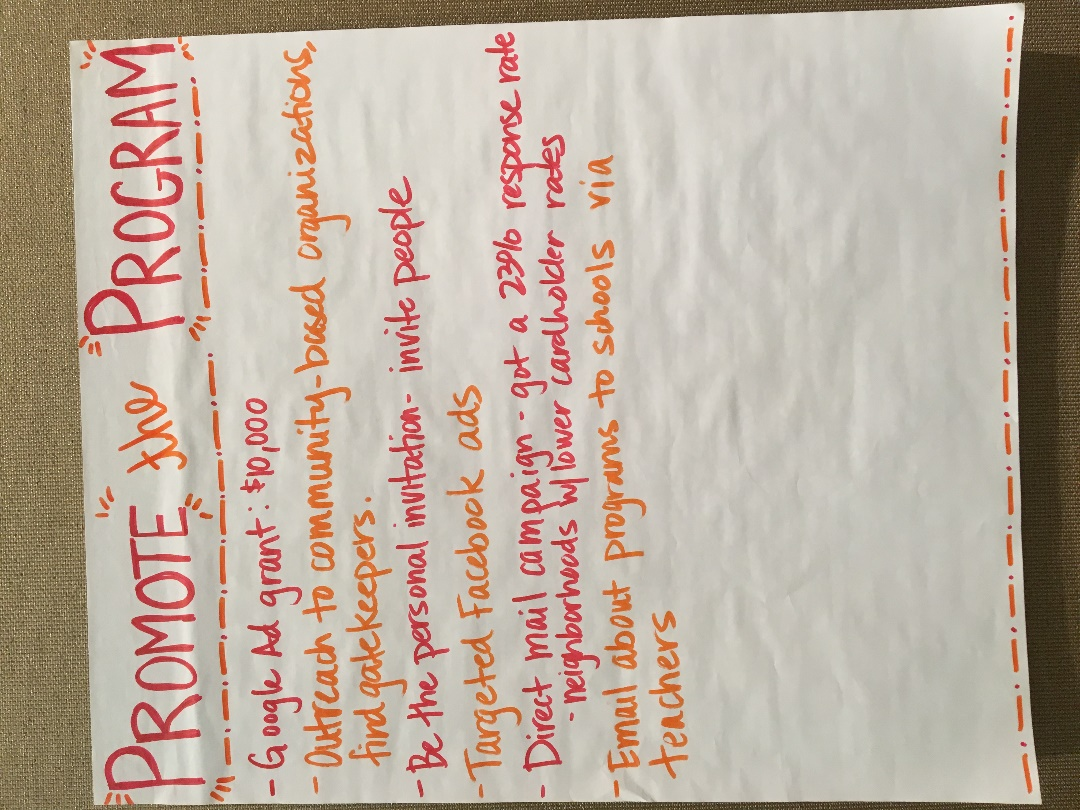 PROMOTE the PROGRAM
- Google Ad grant: $10,000
- Outreach to community-based organizations,
find gatekeepers.
- Be the personal invitation- invite people
- Targeted Facebook ads
- Direct mail campaign - got a 23% response rate
- neighborhoods w/ lower cardholder rates
- Email about programs to schools via
teachers